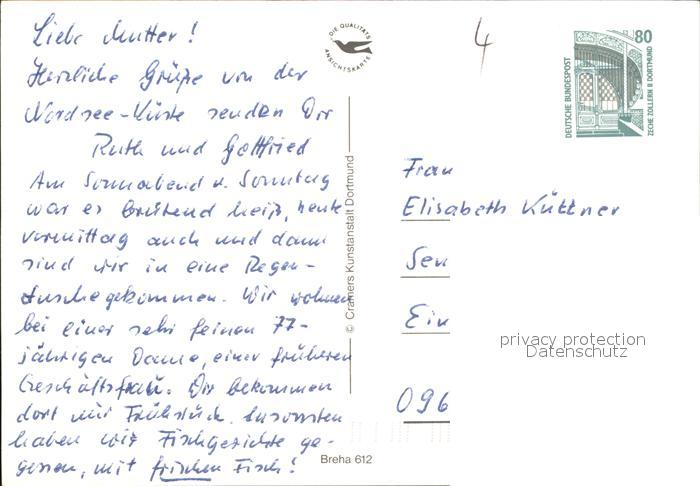 Liebe Mutter!
Herzliche Grüße von der
Nordsee-Küste senden Dir
Ruth und Gottfried
Am Sonnabend u. Sonntag
war es brütend heiß, heute
vormittag auch und dann
sind wir in eine Regen-
dusche gekommen. Wir wohnen
bei einer sehr feinen 77-
jährigen Dame, einer früheren
Geschäftsfrau. Wir bekommen
dort nur Frühstück. Ansonsten
haben wir Fischgerichte ge-
gessen, mit frischen Fisch!
DIE QUALITÄTS
ANSICHTSKARTE
© Cramers Kunstanstalt Dortmund
Breha 612
4
80
DEUTSCHE BUNDESPOST
ZECHE ZOLLERN II DORTMUND
Frau
Elisabeth Küttner
Sen
Ein
096
privacy protection
Datenschutz